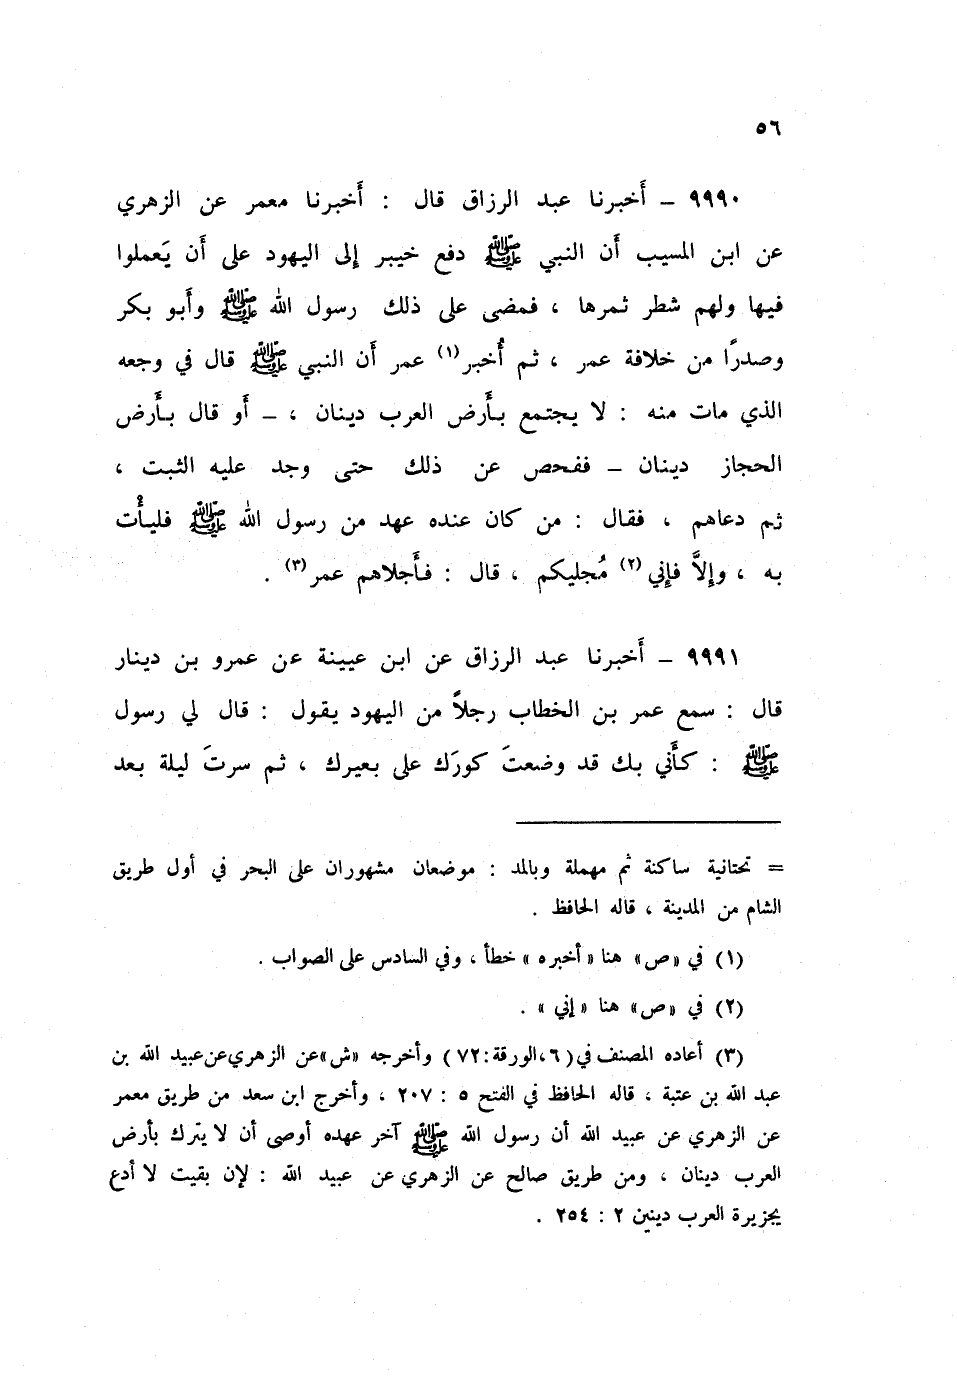 ٥٦
٩٩٩٠ – أَخبرنا عبد الرزاق قال : أَخبرنا معمر عن الزهري
عن ابن المسيب أَن النبي ﷺ دفع خيبر إِلى اليهود على أَن يَعملوا
فيها ولهم شطر ثمرها ، فمضى على ذلك رسول الله ﷺ وأَبو بكر
وصدرًا من خلافة عمر ، ثم أُخبر(١) عمر أَن النبي ﷺ قال في وجعه
الذي مات منه : لا يجتمع بأَرض العرب دينان ، – أَو قال بأَرض
الحجاز دينان – ففحص عن ذلك حتى وجد عليه الثبت ،
ثم دعاهم ، فقال : من كان عنده عهد من رسول الله ﷺ فليأْت
به ، وإِلاَّ فإِني(٢) مُجليكم ، قال : فأَجلاهم عمر(٣) .
٩٩٩١ – أَخبرنا عبد الرزاق عن ابن عيينة عن عمرو بن دينار
قال : سمع عمر بن الخطاب رجلاً من اليهود يقول : قال لي رسول
ﷺ : كأَني بك قد وضعتَ كورَك على بعيرك ، ثم سرتَ ليلة بعد
= تحتانية ساكنة ثم مهملة وبالمد : موضعان مشهوران على البحر في أول طريق
الشام من المدينة ، قاله الحافظ .
(١) في «ص» هنا «أخبره» خطأ ، وفي السادس على الصواب .
(٢) في «ص» هنا «إني» .
(٣) أعاده المصنف في (٦،الورقة:٧٢) وأخرجه «ش»عن الزهري عن عبيد الله بن
عبد الله بن عتبة ، قاله الحافظ في الفتح ٥ : ٢٠٧ ، وأخرج ابن سعد من طريق معمر
عن الزهري عن عبيد الله أن رسول الله ﷺ آخر عهده أوصى أن لا يترك بأرض
العرب دينان ، ومن طريق صالح عن الزهري عن عبيد الله : لإن بقيت لا أدع
بجزيرة العرب دينين ٢ : ٢٥٤ .